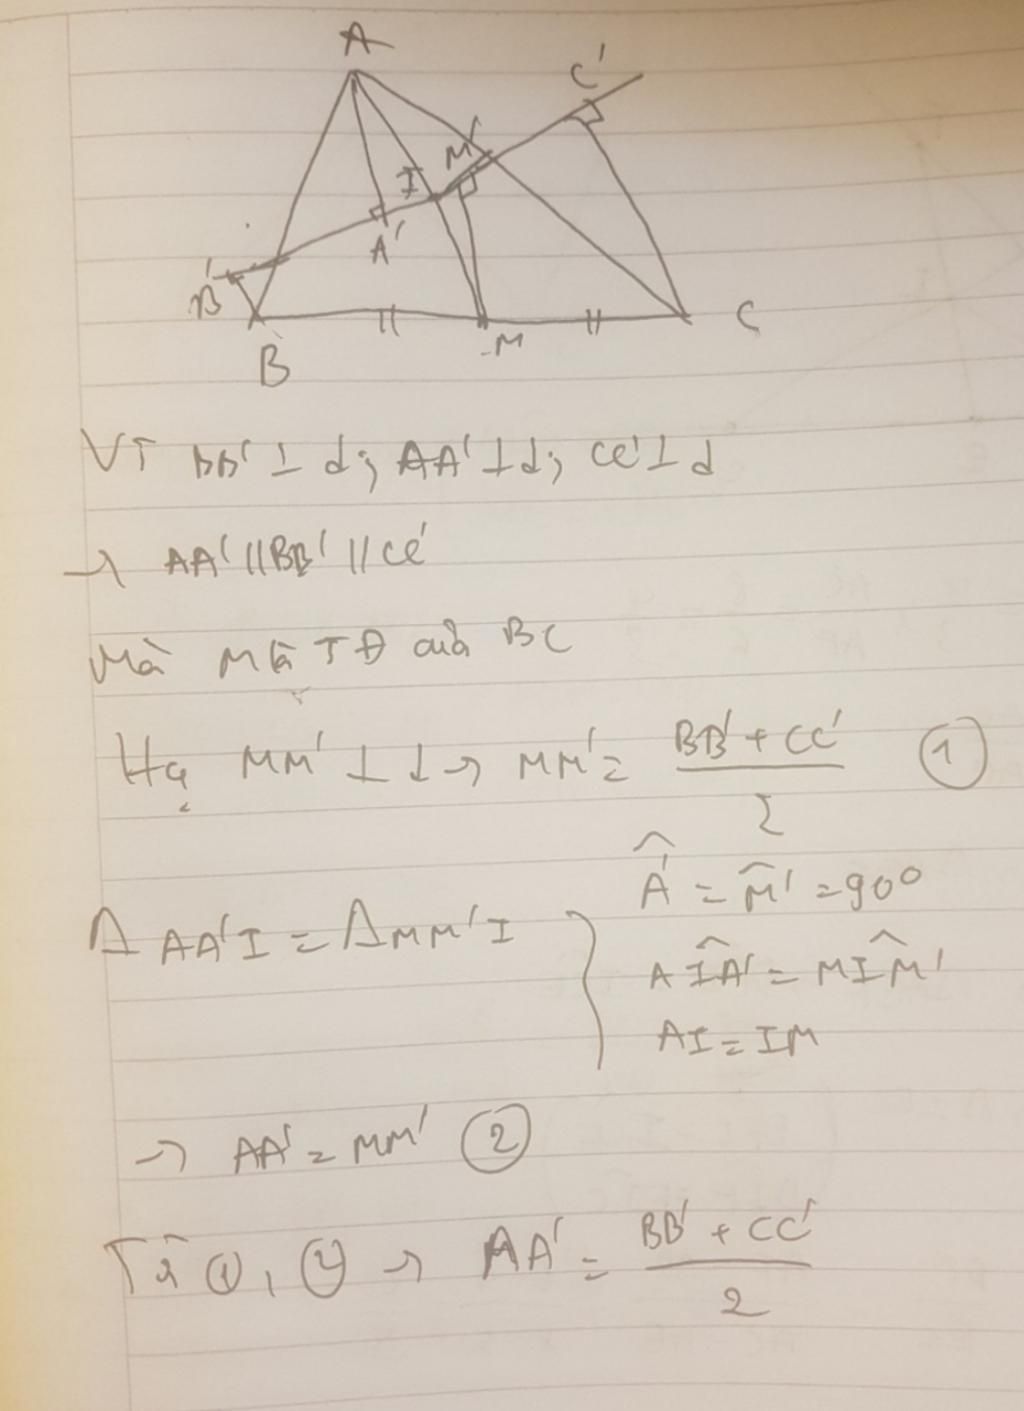 A
C'
M'
I
A'
B'
B
M
C
Vì BB' ⊥ d; AA' ⊥ d; CC' ⊥ d
→ AA' // BB' // CC'
Mà M là TĐ của BC
Hạ MM' ⊥ d → MM' = (BB' + CC') / 2 ①
Δ AA'I = Δ MM'I } Â' = M̂' = 90°
AÎA' = MÎM'
AI = IM
→ AA' = MM' ②
Từ ①, ② → AA' = (BB' + CC') / 2